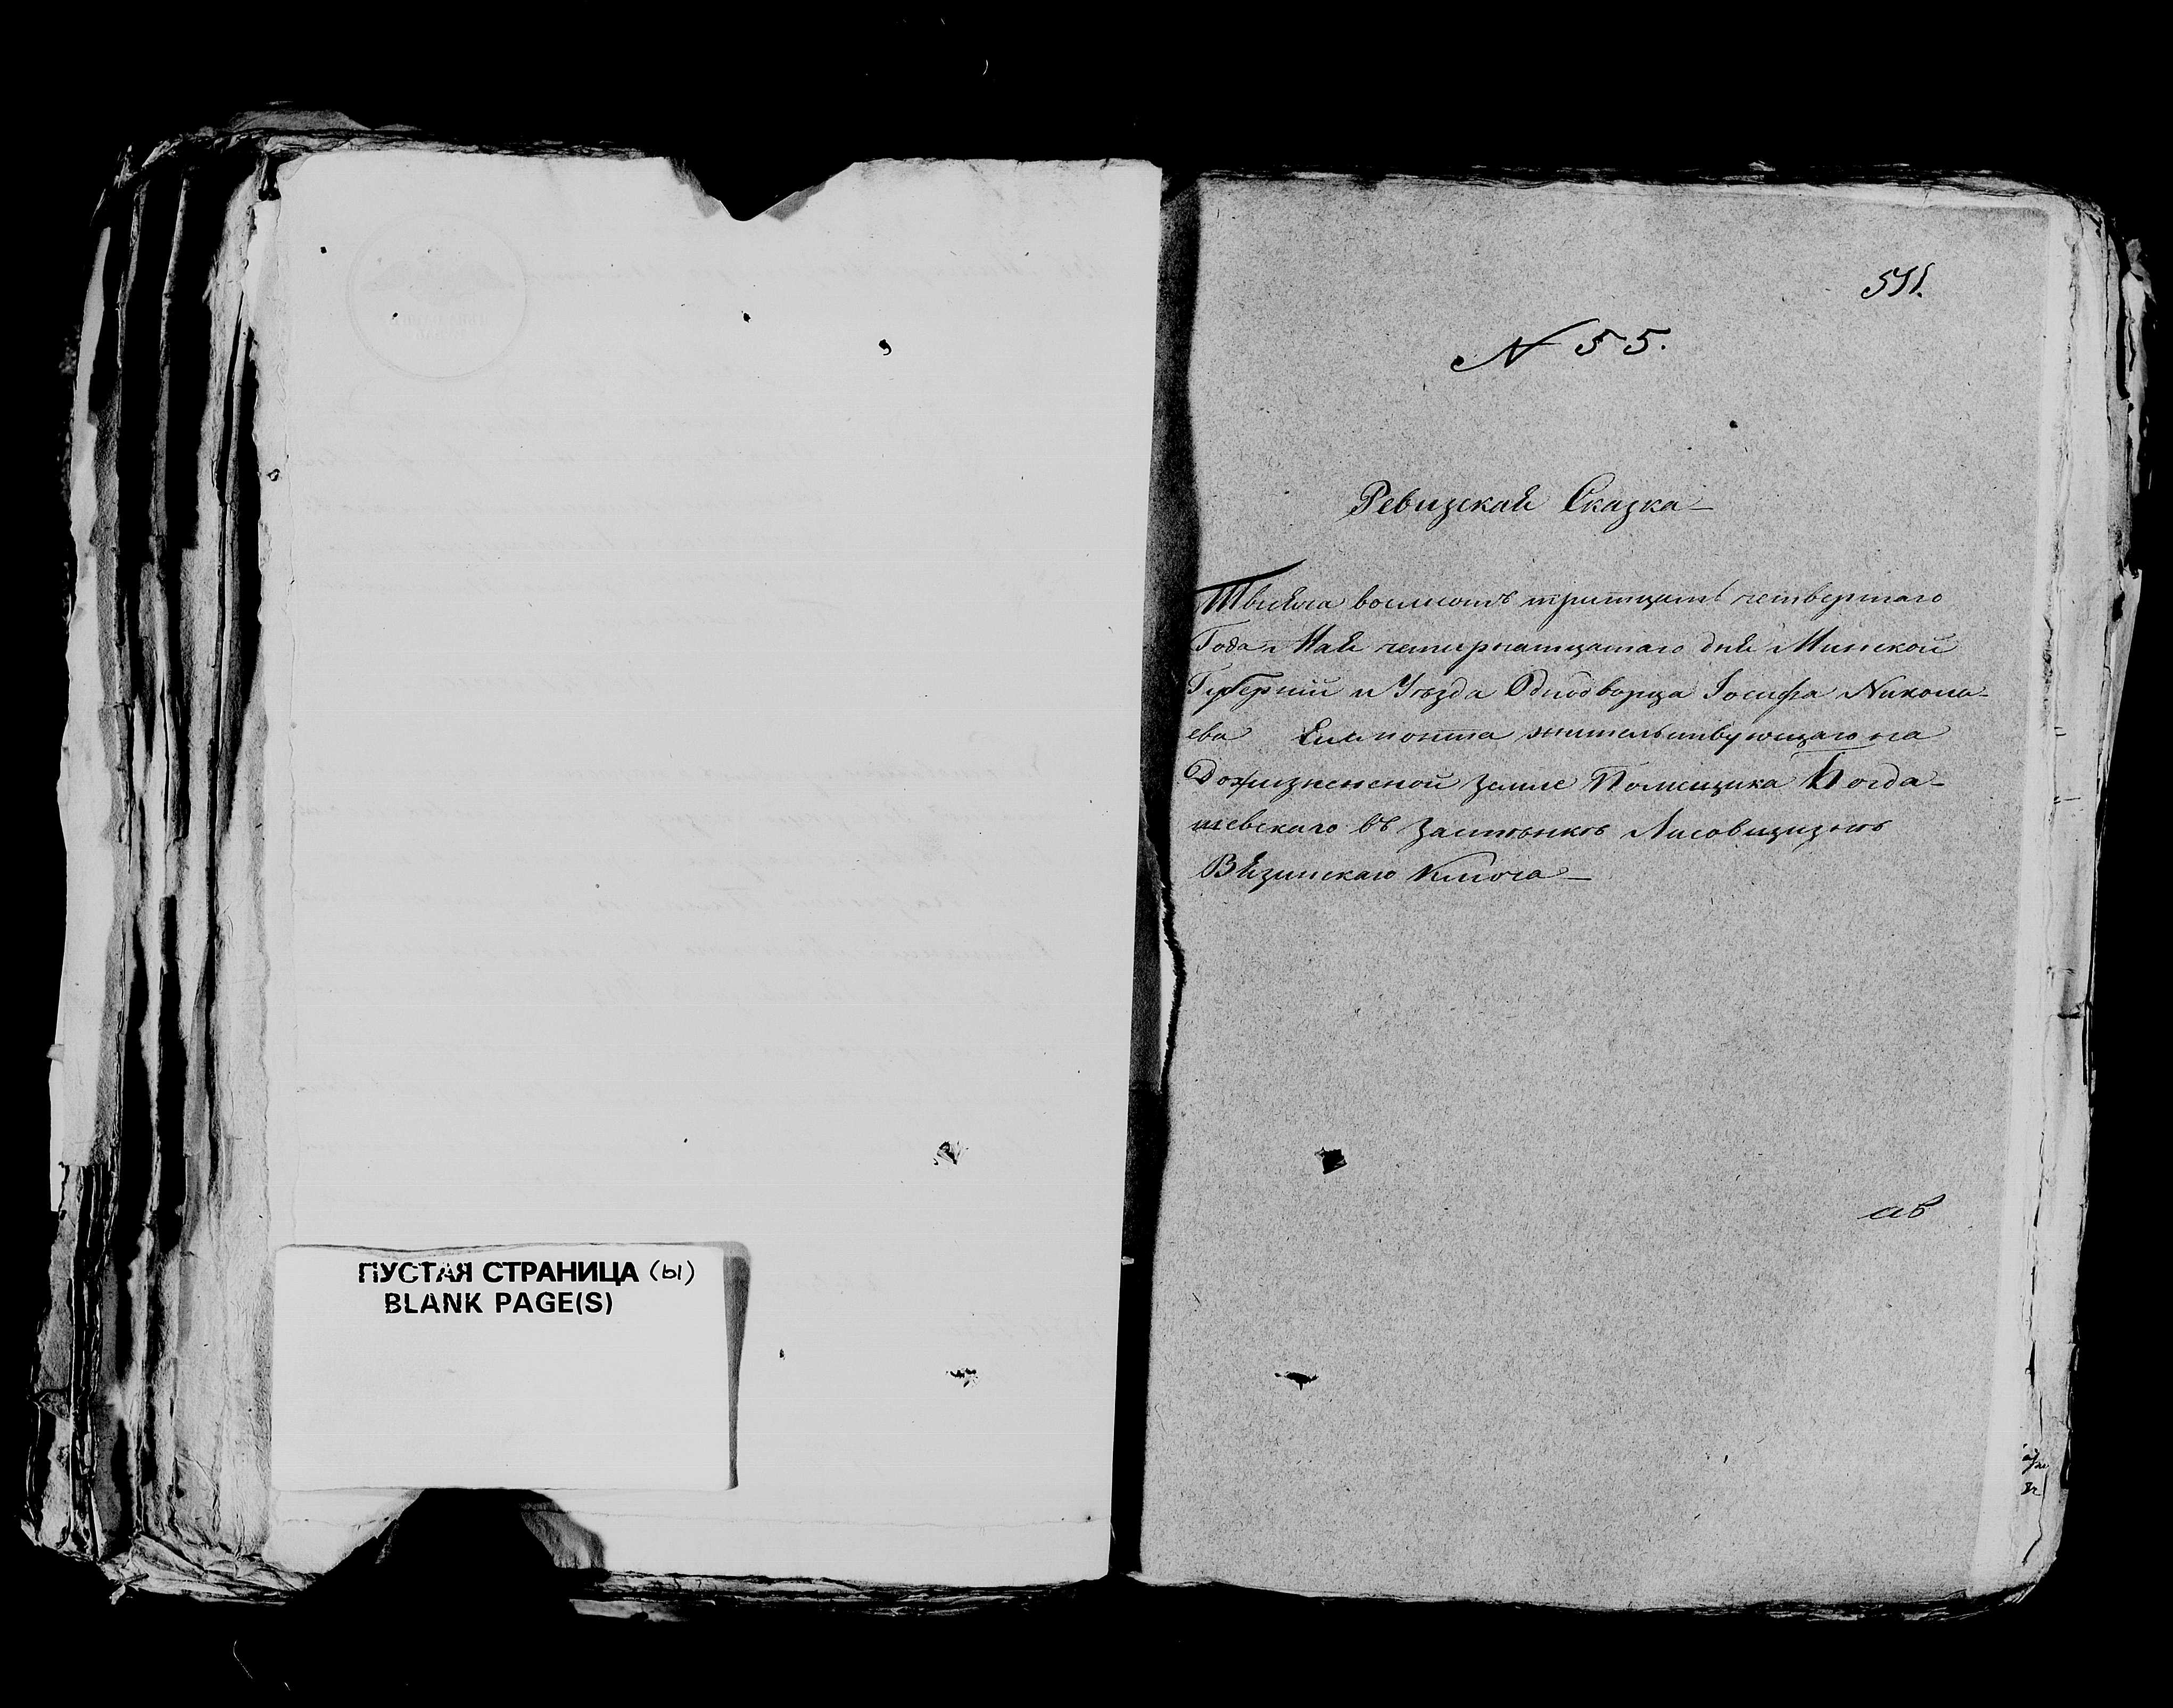 ПУСТАЯ СТРАНИЦА (Ы)
BLANK PAGE(S)
511.
N 55.
Ревизская Сказка
Тысяча восмсотъ тритцать четвертаго
Года Мая четирнатцатаго дня Минской
Губерніи и Уѣзда Однодворца Іосифа Никола-
ева жительствующаго на
Дожизненной Земле Помещика Богда-
шевскаго въ Застѣнкѣ Лисовщизнѣ
Вязинскаго Ключа